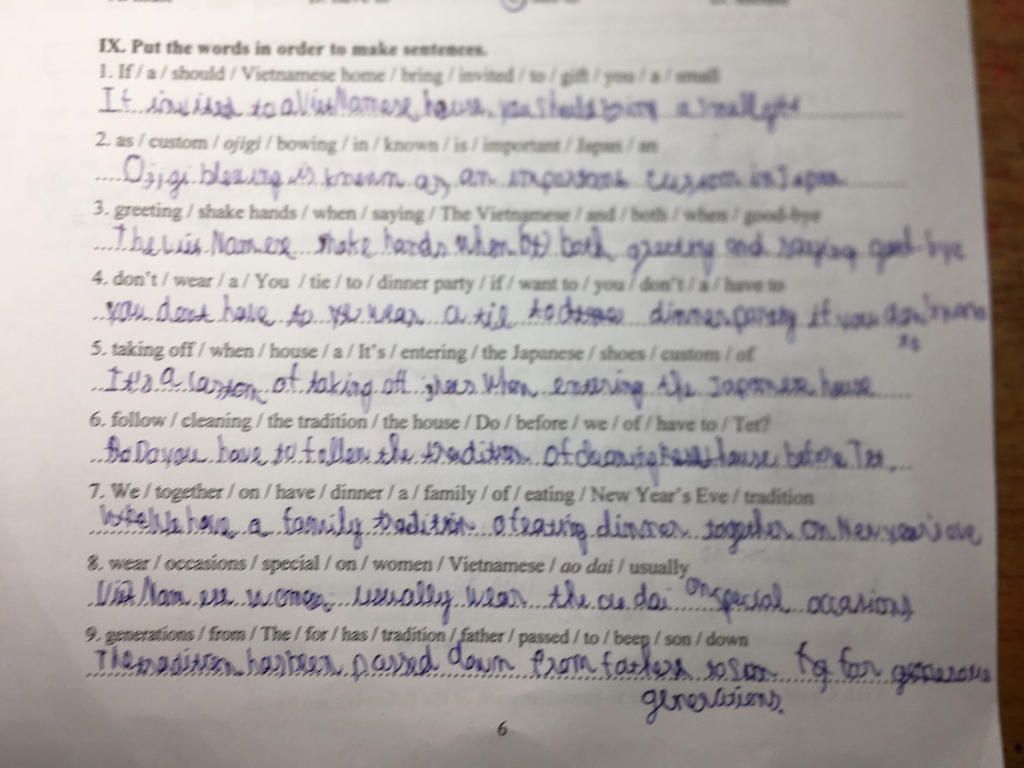 IX. Put the words in order to make sentences.
1. If / a / should / Vietnamese home / bring / invited / to / gift / you / a / small
invited to a VietNamese house, you should bring a small gift
2. as / custom / ojigi / bowing / in / known / is / important / Japan / an
Ojigi is known as an important custom in Japan
3. greeting / shake hands / when / saying / The Vietnamese / and / both / when / good-bye
The VietNamese shake hands when both greeting and saying good-bye
4. don't / wear / a / You / tie / to / dinner party / if / want to / you / don't / a / have to
you dont have to wear a tie to dinner party if you don't want
to
5. taking off / when / house / a / It's / entering / the Japanese / shoes / custom / of
It's a of taking off shoes when entering the Japanese house
6. follow / cleaning / the tradition / the house / Do / before / we / of / have to / Tet?
Do you have to follow the tradition of cleaning house before Tet
7. We / together / on / have / dinner / a / family / of / eating / New Year's Eve / tradition
We have a family tradition of eating dinner together on New year's eve
8. wear / occasions / special / on / women / Vietnamese / ao dai / usually
VietNamese women usually wear the ao dai on special occasions
9. generations / from / The / for / has / tradition / father / passed / to / been / son / down
The tradition has been passed down from father to son for
generations.
6